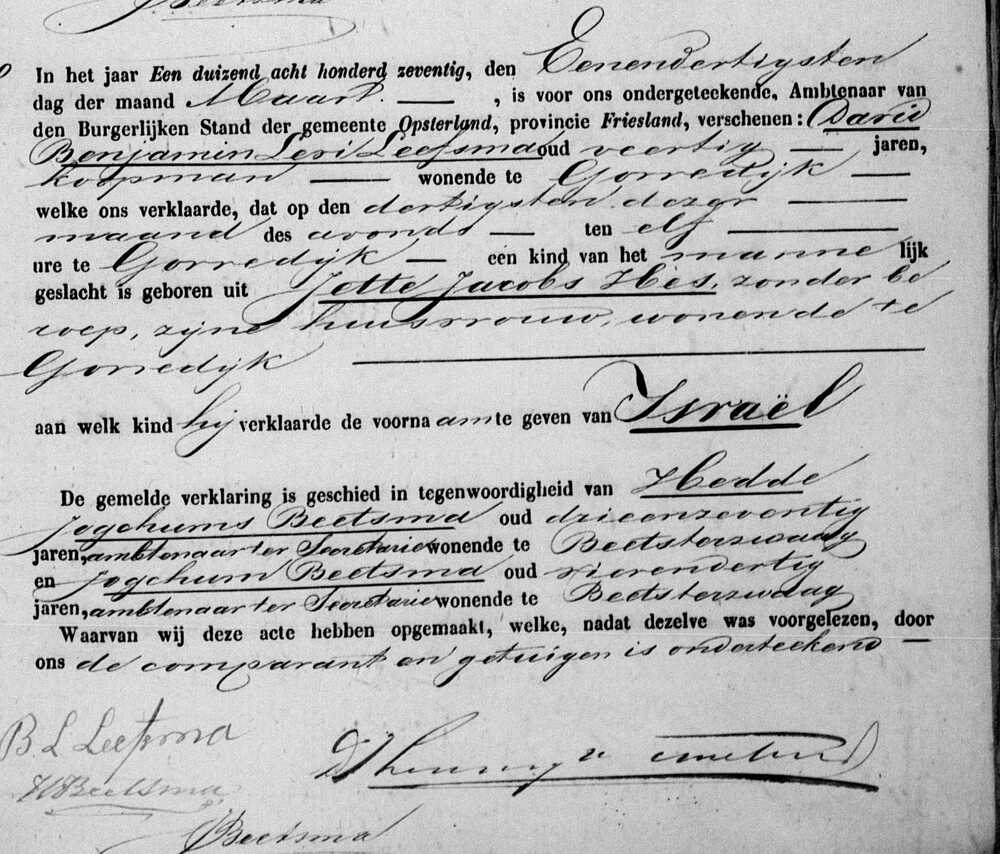 Beetsma
In het jaar Een duizend acht honderd zeventig, den Eenendertigsten
dag der maand Maart. — , is voor ons ondergeteekende, Ambtenaar van
den Burgerlijken Stand der gemeente Opsterland, provincie Friesland, verschenen: David
Benjamin Levi Leefsma oud veertig — jaren,
koopman — wonende te Gorredijk —
welke ons verklaarde, dat op den dertigsten dezer —
maand des avonds — ten elf —
ure te Gorredijk — een kind van het manne lijk
geslacht is geboren uit Jette Jacobs Hes, zonder be
roep, zijne huisvrouw, wonende te
Gorredijk —
aan welk kind hij verklaarde de voorna am te geven van Israël
De gemelde verklaring is geschied in tegenwoordigheid van Hedde
Jogchums Beetsma oud drieenzeventig
jaren, ambtenaar ter Secretarie wonende te Beetsterzwaag
en Jogchum Beetsma oud vierendertig
jaren, ambtenaar ter Secretarie wonende te Beetsterzwaag
Waarvan wij deze acte hebben opgemaakt, welke, nadat dezelve was voorgelezen, door
ons de comparant en getuigen is onderteekend
B L Leefsma
H Beetsma
J Beetsma